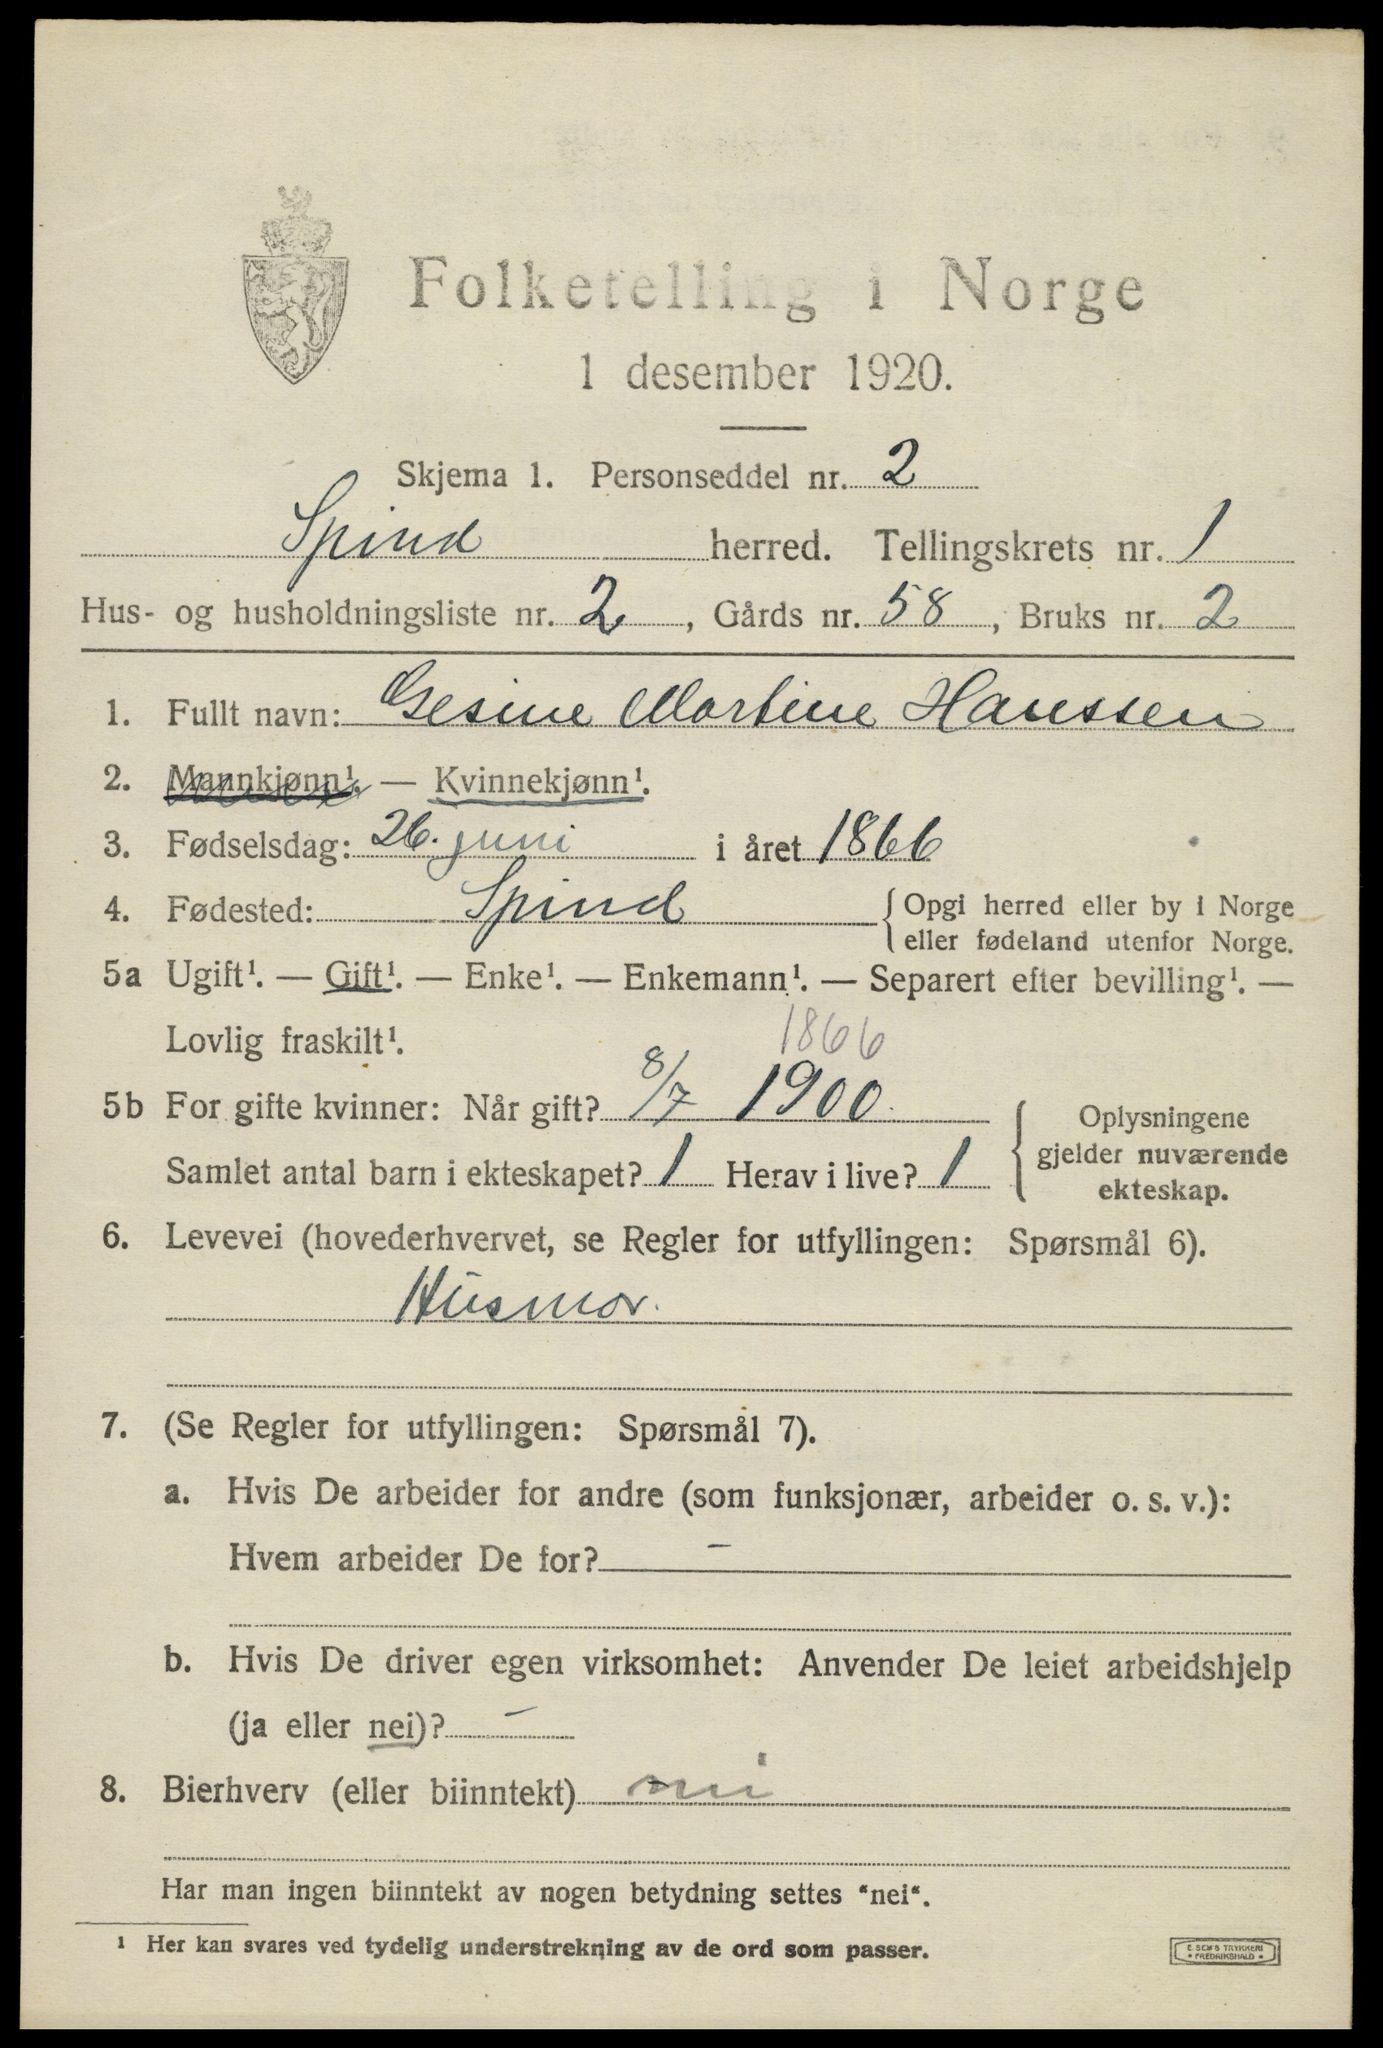 Folketelling i Norge
1 desember 1920.
Skjema 1. Personseddel nr. 2
Spind herred. Tellingskrets nr. 1
Hus- og husholdningsliste nr. 2, Gårds nr. 58, Bruks nr. 2
1. Fullt navn: Gesine Martine Hanssen
2. Mannkjønn¹. — Kvinnekjønn¹.
3. Fødselsdag: 26. juni i året 1866
4. Fødested: Spind {Opgi herred eller by i Norge
eller fødeland utenfor Norge.
5a Ugift¹. — Gift¹. — Enke¹. — Enkemann¹. — Separert efter bevilling¹. —
Lovlig fraskilt¹.
1866
5b For gifte kvinner: Når gift? 8/7 1900. Oplysningene
gjelder nuværende
Samlet antal barn i ekteskapet? 1 Herav i live? 1
ekteskap.
6. Levevei (hovederhvervet, se Regler for utfyllingen: Spørsmål 6).
Husmor.
7. (Se Regler for utfyllingen: Spørsmål 7).
a. Hvis De arbeider for andre (som funksjonær, arbeider o. s. v.):
Hvem arbeider De for? –
b. Hvis De driver egen virksomhet: Anvender De leiet arbeidshjelp
(ja eller nei)? –
8. Bierhverv (eller biinntekt) nei
Har man ingen biinntekt av nogen betydning settes "nei".
¹ Her kan svares ved tydelig understrekning av de ord som passer.
E. SEM'S TRYKKERI
* FREDRIKSHALD *